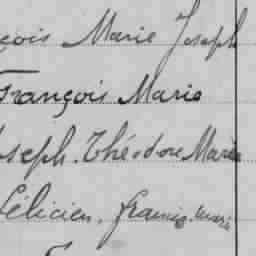 çois Marie Joseph
François Marie
oseph. Théodore Marie
Félicien. francis. marie